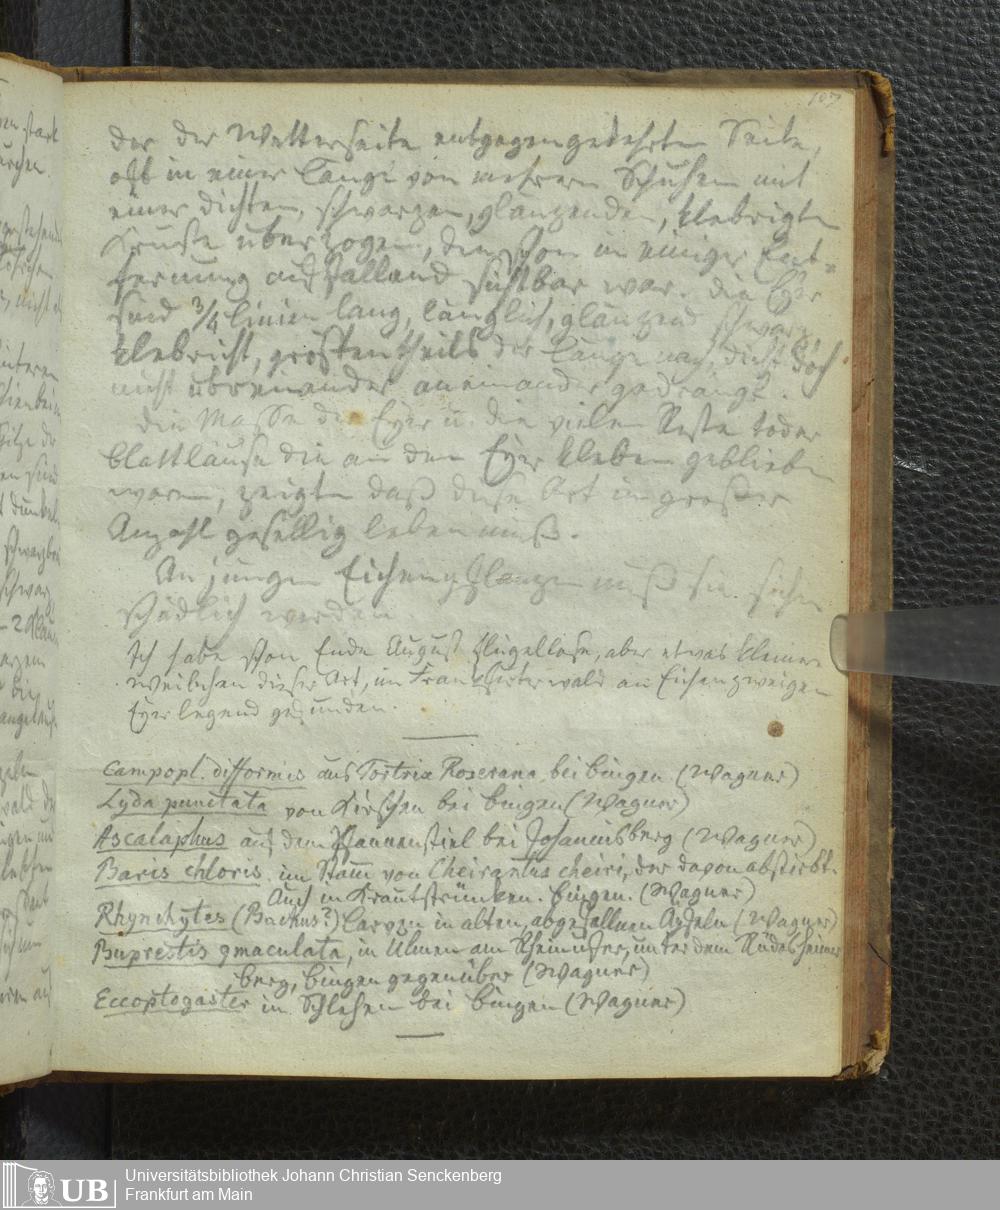 107
der der Wetterseite entgegengekehrten Seite,
oft in einer Länge von mehrern Schuhen mit
einer dichten, schwarzen, glänzenden, klebrigten
Kruste überzogen, die schon in einiger Ent-
fernung auffallend sichtbar war. Die Eyer
sind 3/4 Linien lang, länglich, glänzend schwarz,
klebricht, größtentheils der Länge nach, dicht doch
nicht übereinander aneinander gedrängt.
Die Masse der Eyer u. die vielen Reste todter
Blattläuse die an den Eyer kleben geblieben
waren, zeigten daß diese Art in großer
Anzahl gesellig leben muß.
An jungen Eichenpflanzen muß sie sicher
schädlich werden.
Ich habe schon Ende August flügellose, aber etwas kleinere
Weibchen dieser Art, im Frankfurter wald an Eichenzweigen
Eyer legend gefunden.
Campopl. difformis aus Tortrix Roserana, bei Bingen (Wagner)
Lyda punctata von Kirschen bei Bingen (Wagner)
Ascalaphus auf dem bei Johannisberg (Wagner)
Baris chloris, im Stam von Cheirantus cheiri, der davon abstirbt.
Auch in Krautstrünken. Bingen. (Wagner)
Rhynchytes (Bachus?) Larven in alten, abgefallnen Äpfeln (Wagner)
Buprestis 9maculata, in Ulmen am Rheinufer, unter dem Rüdesheimer
berg, Bingen gegenüber (Wagner)
Eccoptogaster in Schlehen bei Bingen (Wagner)
UB
Universitätsbibliothek Johann Christian Senckenberg
Frankfurt am Main